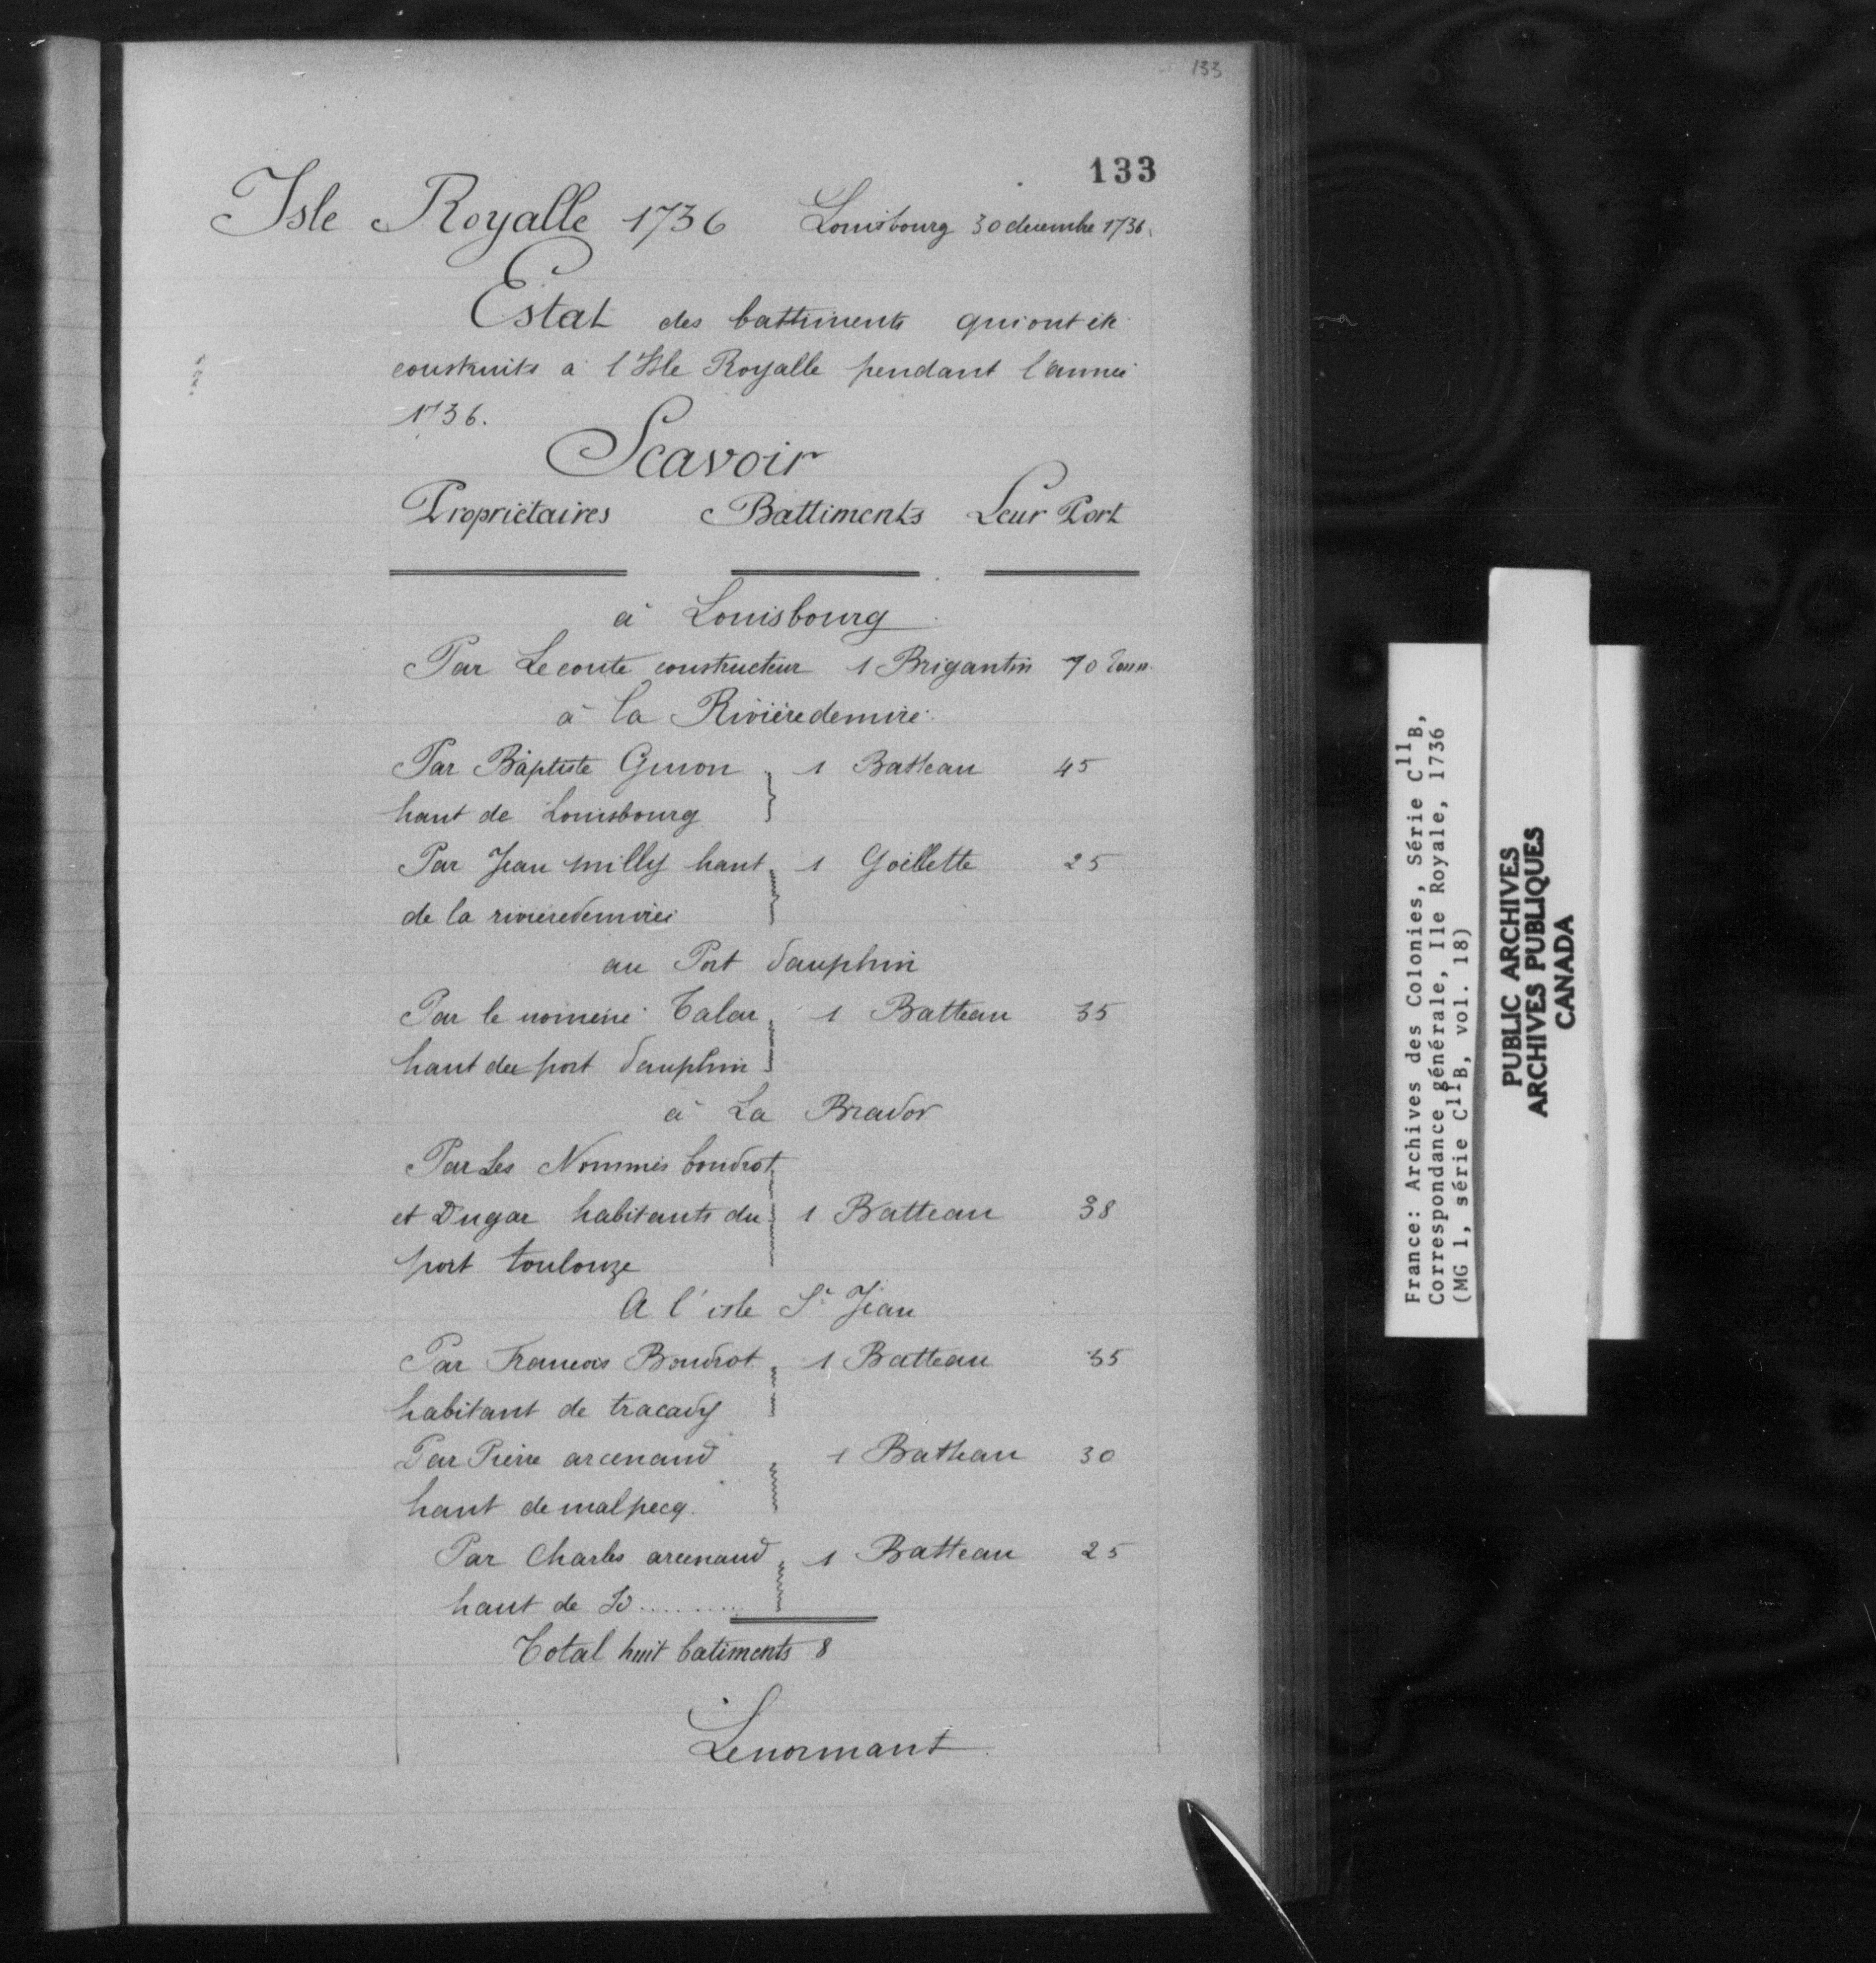 133
133
Isle Royalle 1736 Louisbourg 30 decembre 1736.
Estat des battiments qui ont été
construits a l'Isle Royalle pendant l'année
1736.
Scavoir
Propriétaires Battiments Leur Port
à Louisbourg
Par Leconte constructeur 1 Brigantin 70 Tonn
à la Rivièredemiré
Par Baptiste Guion 1 Batteau 45
hant de Louisbourg
Par Jean milly hant 1 Goëllette 25
de la rivieredemiréé
au Port dauphin
Par le nommé Talar 1 Batteau 35
hant du port dauphin
à La Brador
Par Les Nommés boudrot
et Dugar habitants du 1 Batteau 38
port toulouze
A l'isle St Jean
Par Francois Boudrot 1 Batteau 35
habitant de tracady
Par Pierre arcenaud 1 Batteau 30
hant de malpecq.
Par Charles arcenaud 1 Batteau 25
hant de Id.........
Total huit batiments 8
Lenormant
France: Archives des Colonies, Série C11B,
Correspondance générale, Ile Royale, 1736
(MG 1, série C11B, vol. 18)
PUBLIC ARCHIVES
ARCHIVES PUBLIQUES
CANADA